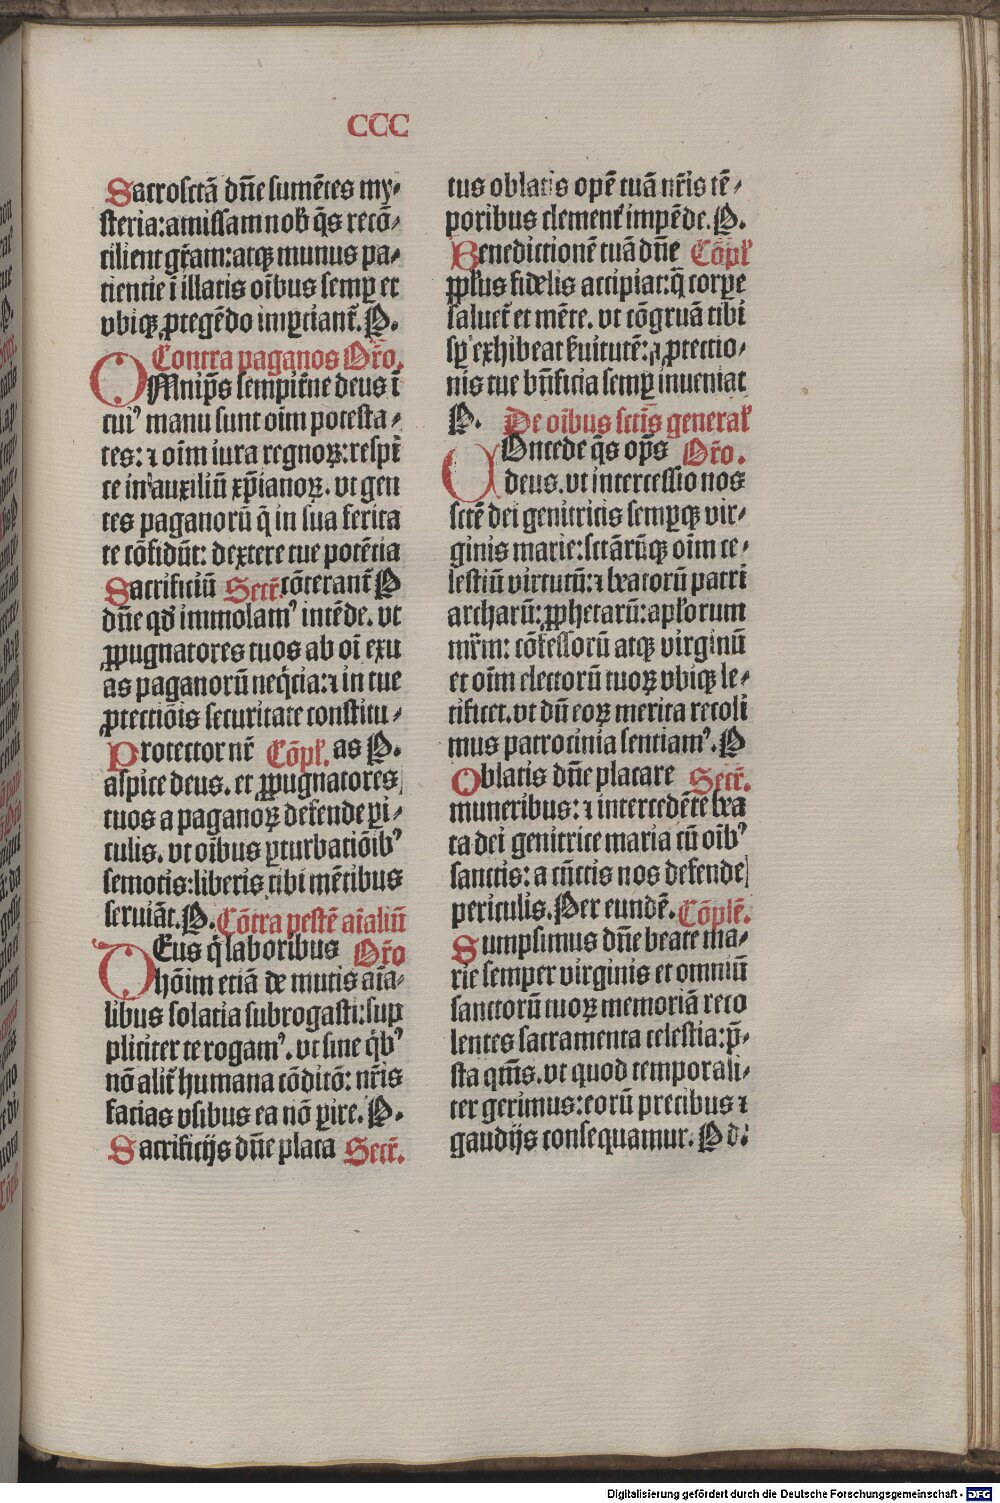 CCC
Sacrosctã dñe sumẽtes my⸗
steria: amissam nob̄ q̃s recõ⸗
cilient gr̃am: atqꝫ munus pa⸗
cientie ĩ illatis oĩbus semꝑ et
vbiqꝫ ꝓtegẽdo imꝑciant̃. P.
Contra paganos Or̃o.
OMnip̃s sempit̃ne deus ĩ
cuiꝰ manu sunt oĩm potesta⸗
tes: ⁊ oĩm iura regnoꝝ: respi
ce in auxiliũ xp̃ianoꝝ. vt gen
tes paganorũ q̃ in sua ferita
te cõfidũt: dextere tue potẽcia
Sacrificiũ Secr̃. cõterant̃ P
dñe qđ immolamꝰ intẽde. vt
ꝓpugnatores tuos ab oĩ exu
as paganorũ neq̃cia: ⁊ in tue
ꝓtectiõis securitate constitu⸗
Protector nr̃ Cõpł. as P.
aspice deus. et ꝓpugnatores
tuos a paganoꝝ defende ꝑi⸗
culis. vt oĩbus ꝑturbatiõibꝰ
semotis: liberis tibi mẽtibus
seruiãt. P. Cõtra pestẽ aĩaliũ
DEus q̃ laboribus Or̃o
hõim etiã de mutis aĩa⸗
libus solacia subrogasti: sup
pliciter te rogamꝰ. vt sine q̃bꝰ
nõ alit̃ humana cõditõ: nr̃is
facias vsibus ea nõ ꝑire. P.
Sacrificijs dñe placa Secr̃.
tus oblatis opẽ tuã nr̃is tẽ⸗
poribus clement̃ impẽde. P.
Benedictionẽ tuã dñe Cõpł
ppłus fidelis accipiat: q̃ corpe
saluet̃ et mẽte. vt cõgruã tibi
sꝑ exhibeat ẜuitutẽ: ⁊ ꝓtectio⸗
nis tue bñficia semꝑ inueniat
P. De oĩbus sctĩs generał
COncede q̃s op̃s Or̃o.
deus. vt intercessio nos
sctẽ dei genitricis sempqꝫ vir⸗
ginis marie: sctãrũqꝫ oĩm ce⸗
lestiũ virtutũ: ⁊ beatorũ patri
archarũ: ꝓphetarũ: apłorum
mr̃m: cõfessorũ atqꝫ virginũ
et oĩm electorũ tuoꝝ vbiqꝫ le⸗
tificet. vt dũ eoꝝ merita recoli
mus patrocinia sentiamꝰ. P
Oblatis dñe placare Secr̃.
muneribus: ⁊ intercedẽte bea
ta dei genitrice maria cũ oĩbꝰ
sanctis: a cũctis nos defende
periculis. Per eundẽ. Cõplẽ.
Sumpsimus dñe beate ma⸗
rie semper virginis et omniũ
sanctorũ tuoꝝ memoriã reco
lentes sacramenta celestia: p̃⸗
sta q̃ms. vt quod temporali⸗
ter gerimus: eorũ precibus ⁊
gaudijs consequamur. P d.
Digitalisierung gefördert durch die Deutsche Forschungsgemeinschaft - DFG